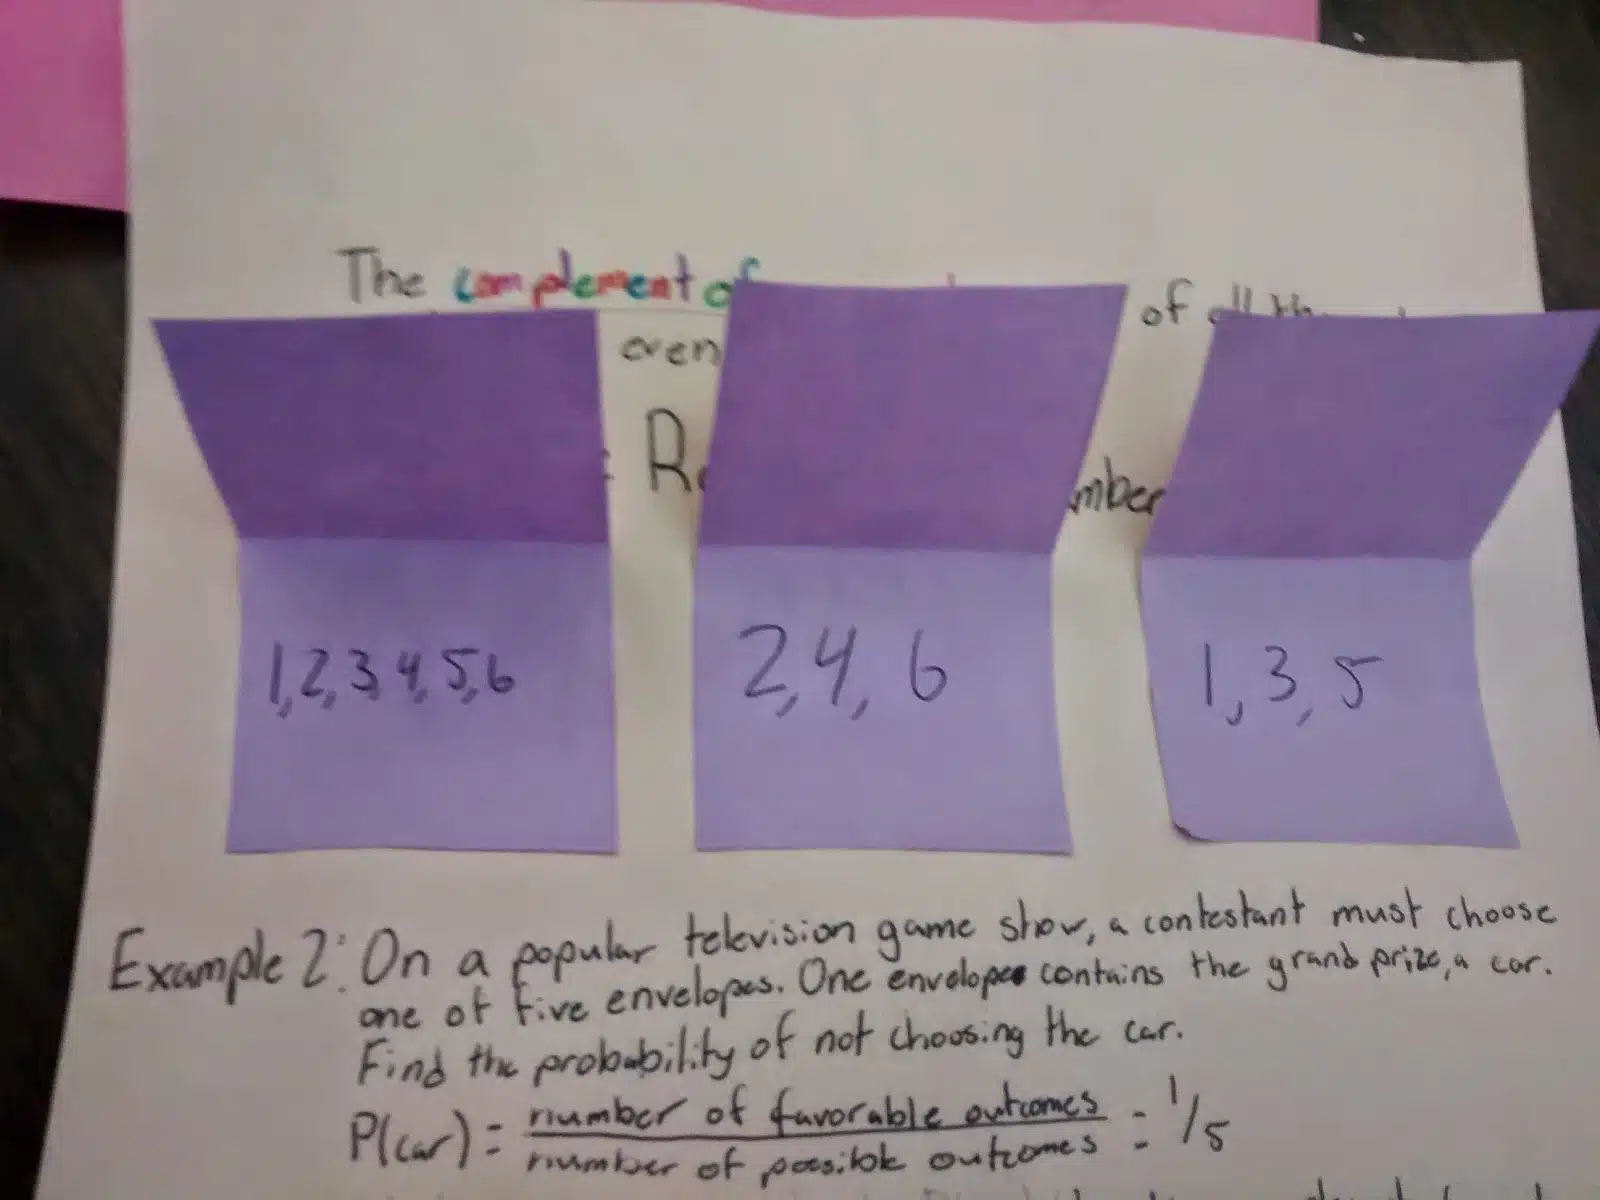 The complement of of all
even
mber
1,2,3,4,5,6
2,4,6
1,3,5
Example 2: On a popular television game show, a contestant must choose
one of five envelopes. One envelope contains the grand prize, a car.
Find the probability of not choosing the car.
P(car) = number of favorable outcomes = 1/5
number of possible outcomes